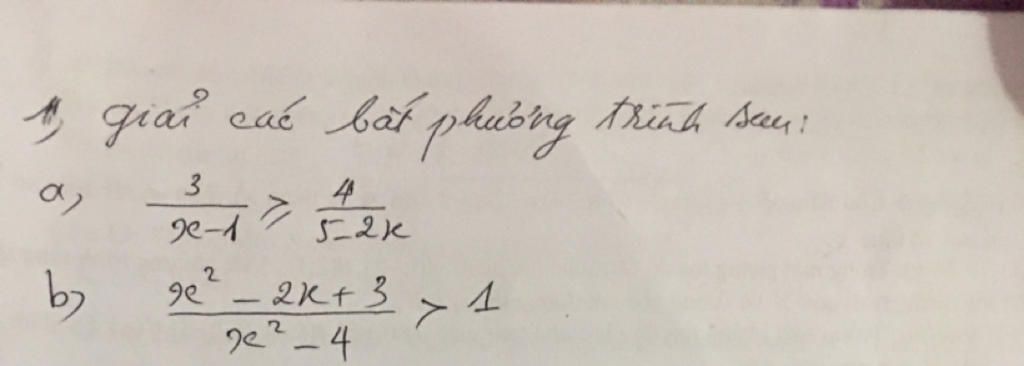 1, giải các bất phương trình sau:
a, \frac{3}{x-1} \geq \frac{4}{5-2x}
b) \frac{x^2-2x+3}{x^2-4} > 1